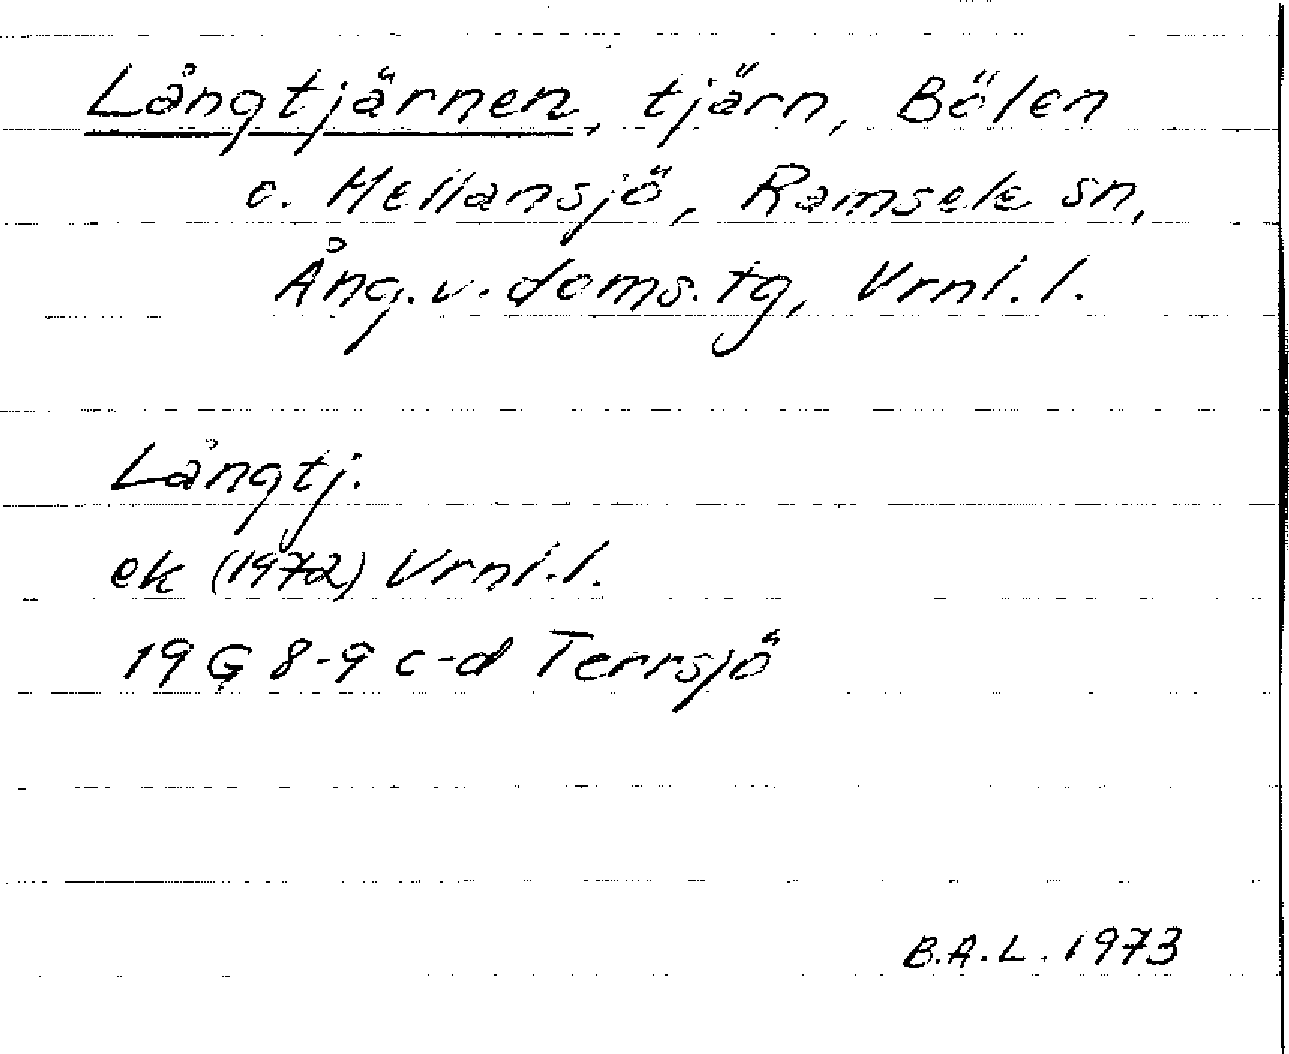 Långtjärnen, tjärn, Bölen
o. Mellansjö, Ramsele sn,
Ång. v. doms. tg, Vrnl. l.
Långtj.
ek (1972) Vrnl. l.
19 G 8-9 c-d Terrsjö
B.A.L. 1973